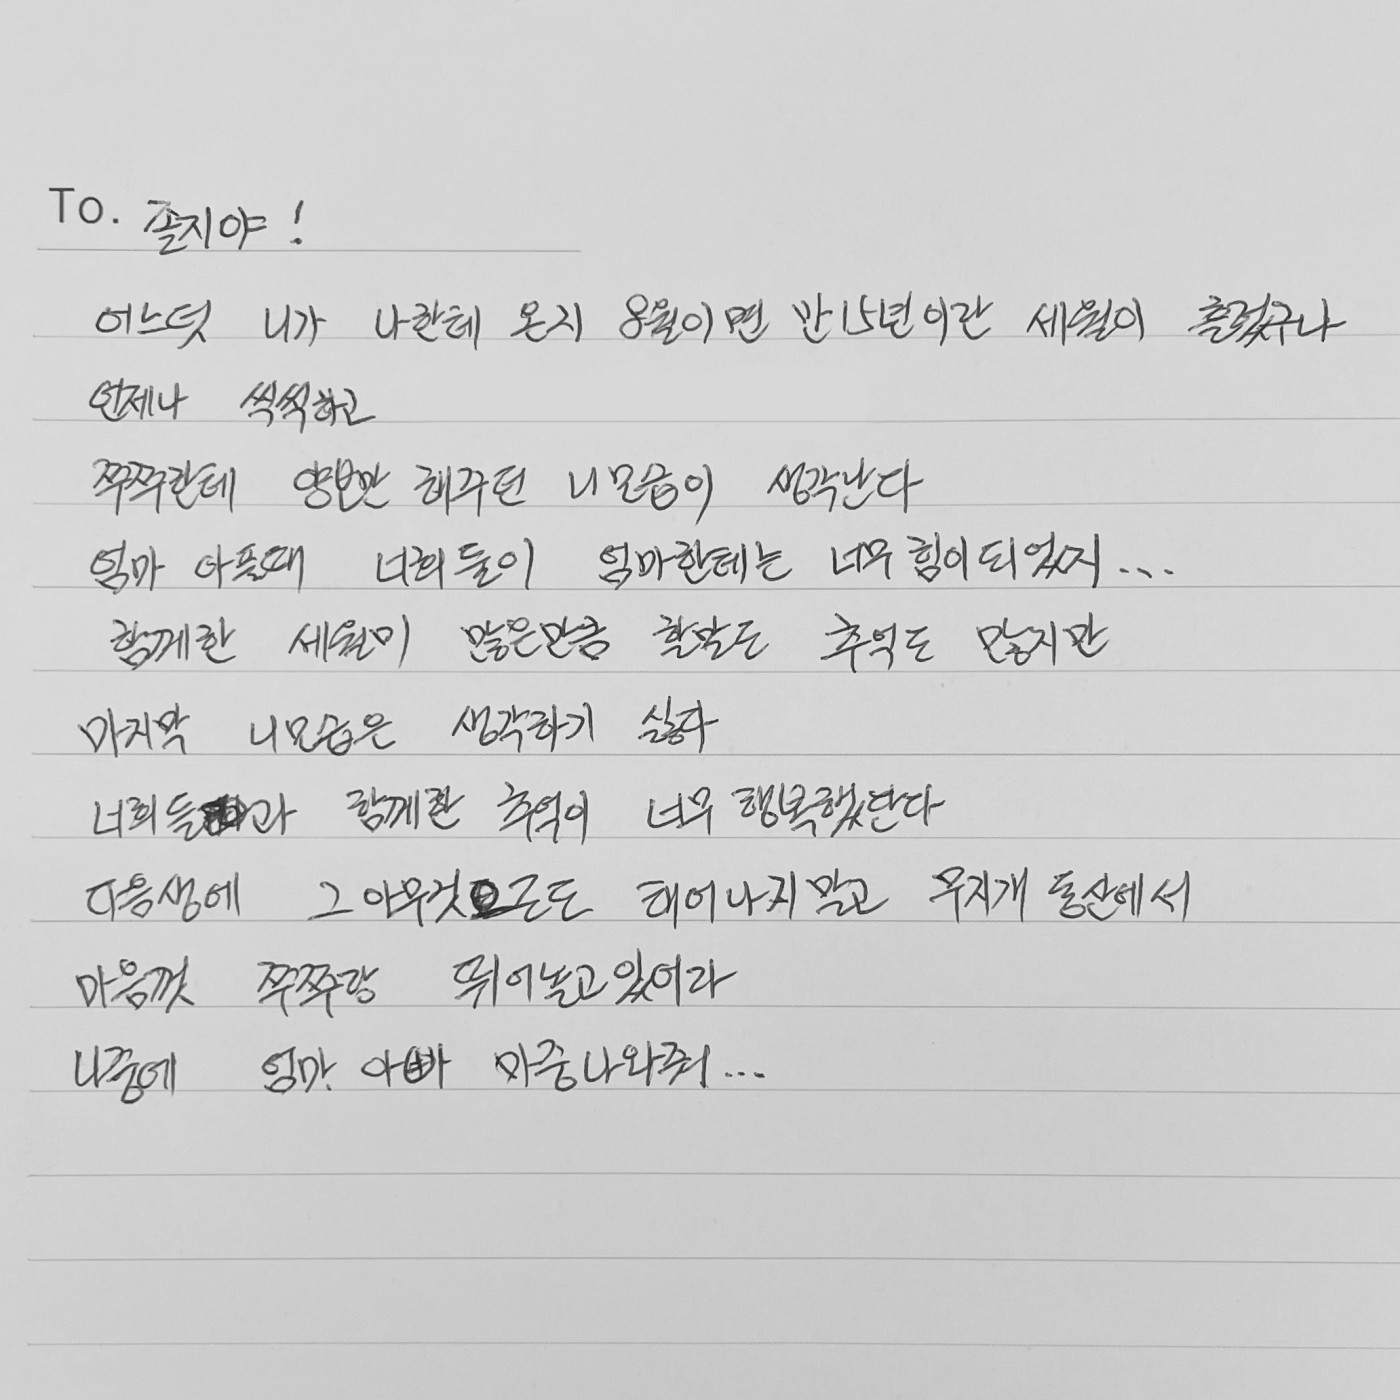 To. 졸지야!
어느덧 니가 나한테 온지 8월이면 만 15년이란 세월이 흘렀구나
언제나 씩씩하고
쭈쭈한테 양보만 해주던 니모습이 생각난다
엄마 아플때 너희들이 엄마한테는 너무 힘이되었지...
함께한 세월이 많은만큼 할말도 추억도 많지만
마지막 니모습은 생각하기 싫다
너희들과 함께한 추억이 너무 행복했단다
다음생에 그 아무것으로도 태어나지말고 무지개 동산에서
마음껏 쭈쭈랑 뛰어놀고있어라
나중에 엄마. 아빠 마중나와줘...